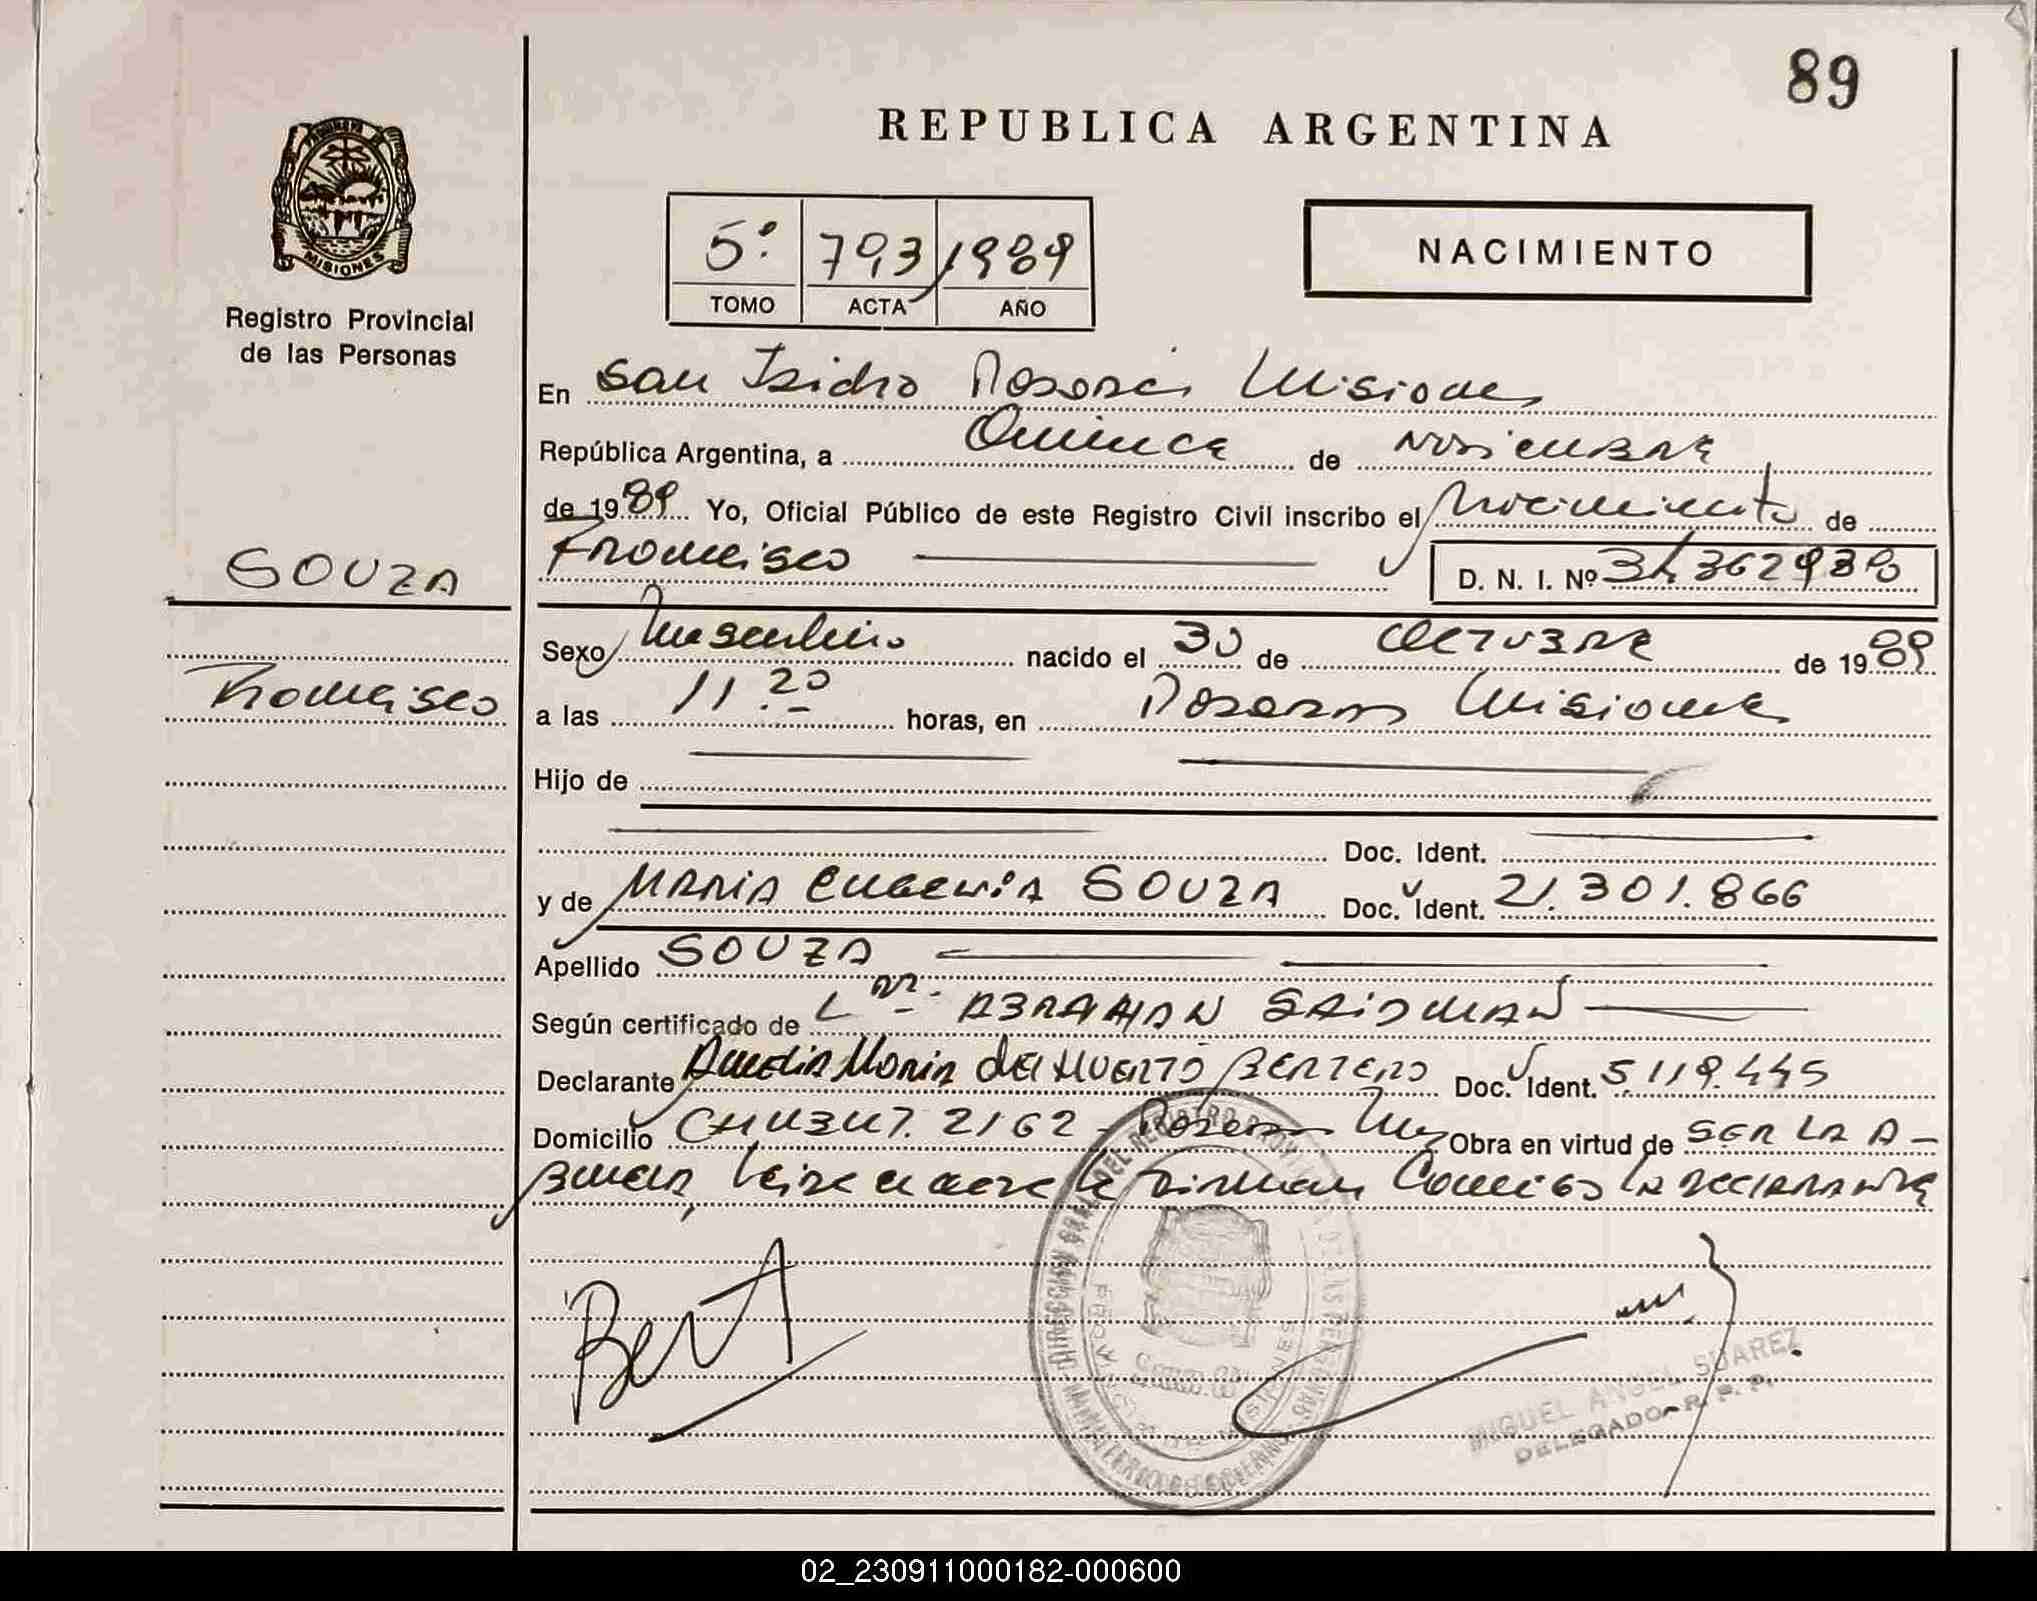 89
REPUBLICA ARGENTINA
MISIONES
Registro Provincial
de las Personas
5º 793 1989
TOMO ACTA AÑO
NACIMIENTO
En San Isidro Posadas Misiones
República Argentina, a Quince de Noviembre
de 1989 Yo, Oficial Público de este Registro Civil inscribo el Nacimiento de
Francisco D. N. I. Nº
SOUZA
Sexo Masculino nacido el 30 de OCTUBRE de 1989
Francisco
a las 11.20 horas, en Posadas Misiones
Hijo de
Doc. Ident.
y de MARIA EUGENIA SOUZA Doc. Ident. 21.301.866
Apellido SOUZA
Según certificado de ABRAHAN
Declarante Amelia Maria del HUERTO BERTERO Doc. Ident. 5.119.445
Domicilio CHUBUT. 2162 - Posadas Obra en virtud de SER LA A-
BUELA, Leída el acta la firman Conmigo la DECLARANTE
DIRECCION GRAL DEL REGISTRO PROVINCIAL DE LAS PERSONAS
MINISTERIO DE GOBIERNO
PROVINCIA DE MISIONES
MIGUEL ANGEL SUAREZ
DELEGADO R. P. P.
02_230911000182-000600